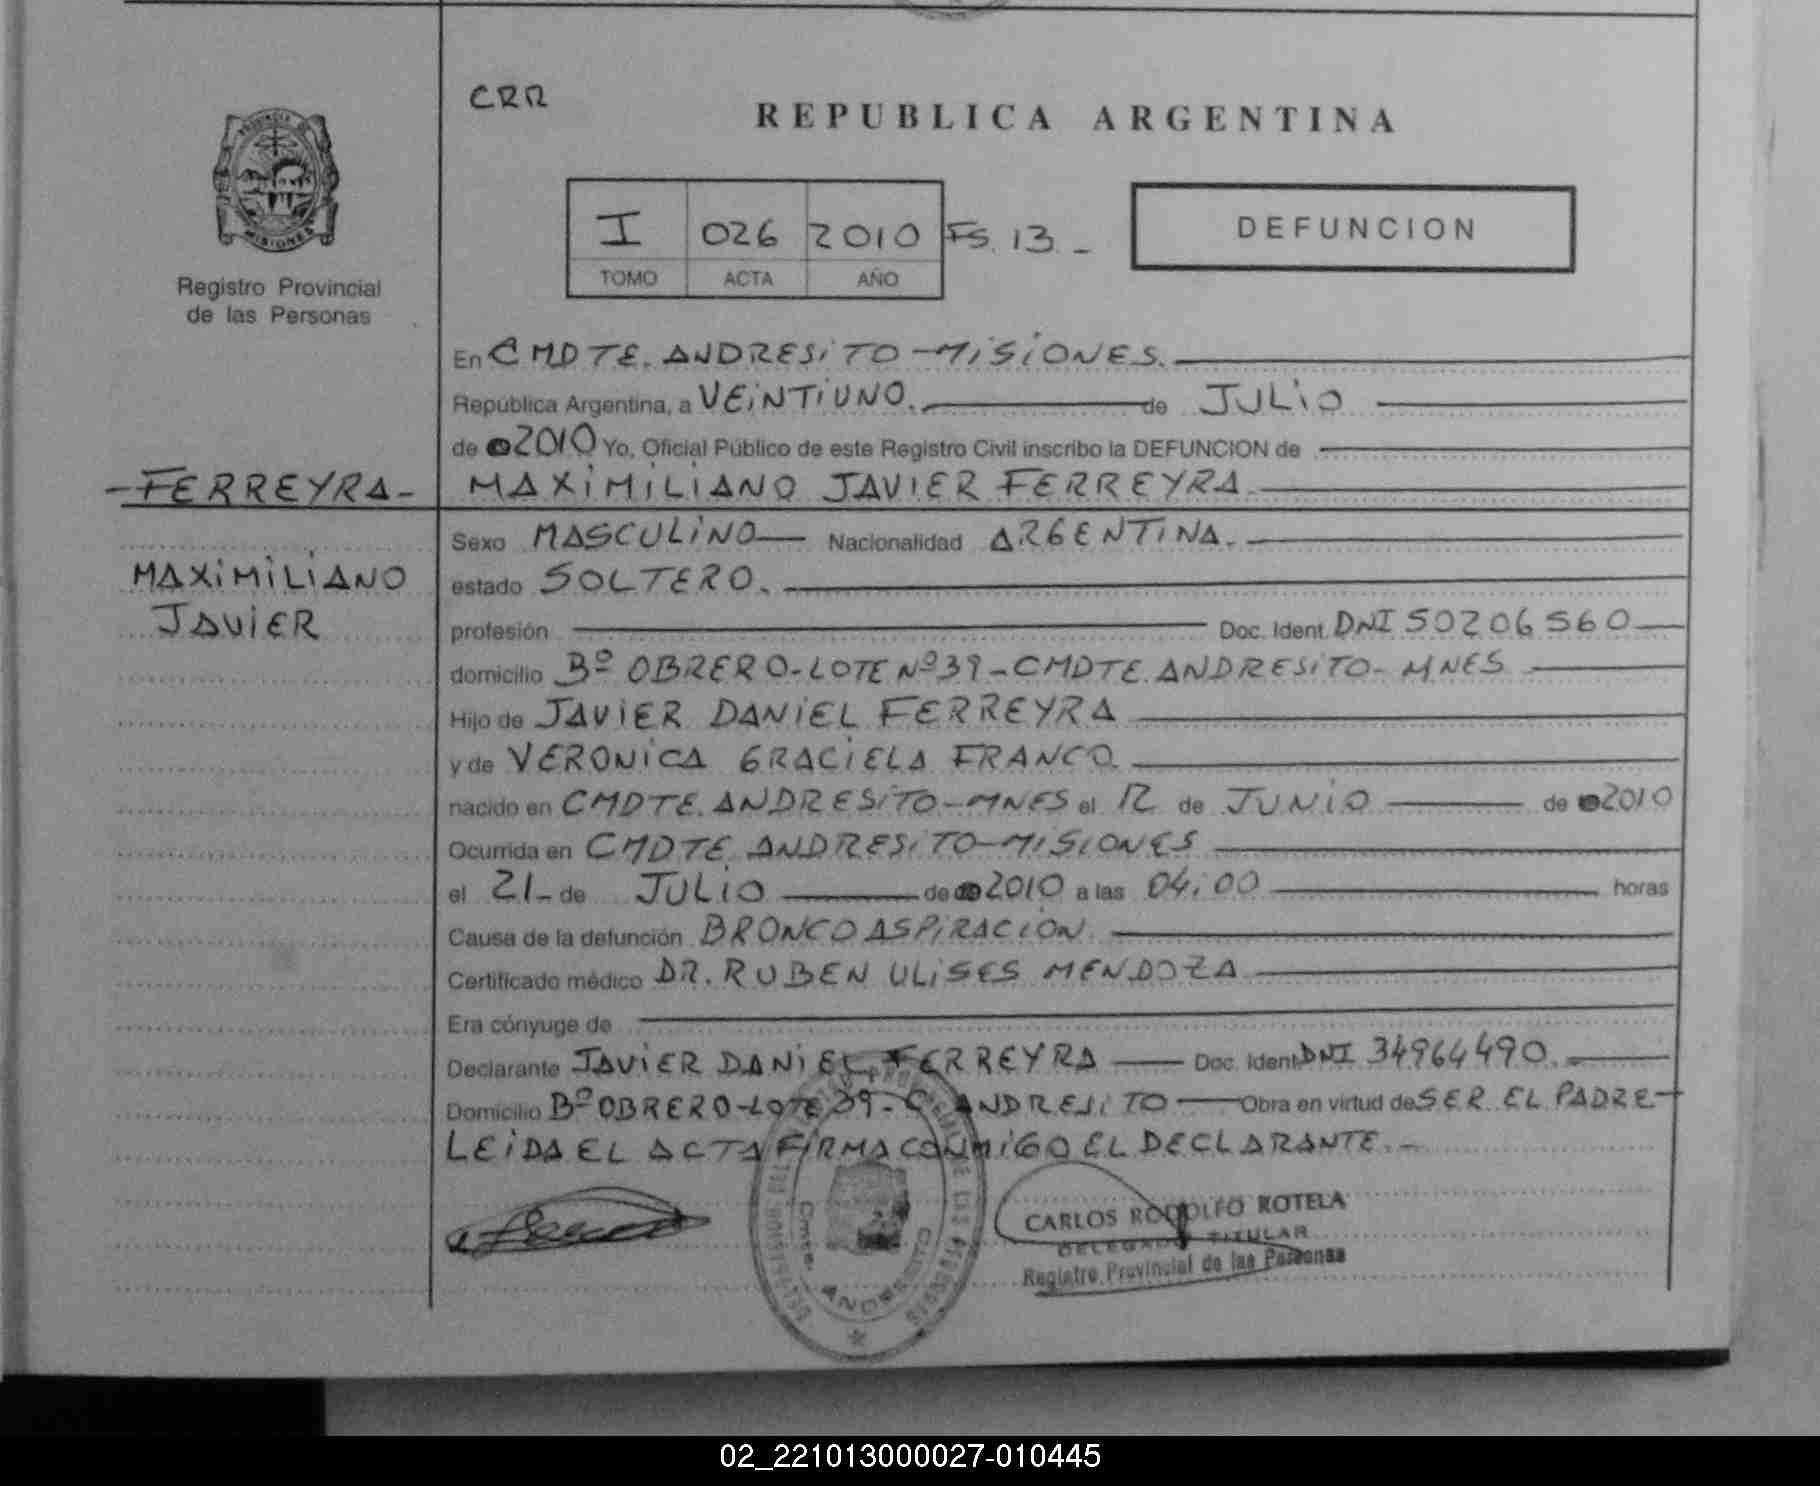 CRR
REPUBLICA ARGENTINA
I 026 2010 FS. 13.-
TOMO ACTA AÑO
DEFUNCION
PROVINCIA DE
MISIONES
Registro Provincial
de las Personas
En CMDTE. ANDRESITO-MISIONES.
República Argentina, a VEINTIUNO. de JULIO
de 2010 Yo, Oficial Público de este Registro Civil inscribo la DEFUNCION de
-FERREYRA-
MAXIMILIANO JAVIER FERREYRA.
MAXIMILIANO
JAVIER
Sexo MASCULINO Nacionalidad ARGENTINA.
estado SOLTERO.
profesión Doc. Ident. DNI 50206560
domicilio Bº OBRERO-LOTE Nº39-CMDTE. ANDRESITO-MNES
Hijo de JAVIER DANIEL FERREYRA
y de VERONICA GRACIELA FRANCO.
nacido en CMDTE. ANDRESITO-MNES el 12 de JUNIO de 2010
Ocurrida en CMDTE. ANDRESITO-MISIONES
el 21- de JULIO de 2010 a las 04:00 horas
Causa de la defunción BRONCOASPIRACIÓN.
Certificado médico DR. RUBEN ULISES MENDOZA
Era cónyuge de
Declarante JAVIER DANIEL FERREYRA Doc. Ident. DNI 34964490.
Domicilio Bº OBRERO-LOTE 39-C. ANDRESITO Obra en virtud de SER EL PADRE-
LEIDA EL ACTA FIRMA CONMIGO EL DECLARANTE.-
Cmte. ANDRESITO
CARLOS RODOLFO ROTELA
DELEGADO TITULAR
Registro Provincial de las Personas
02_221013000027-010445